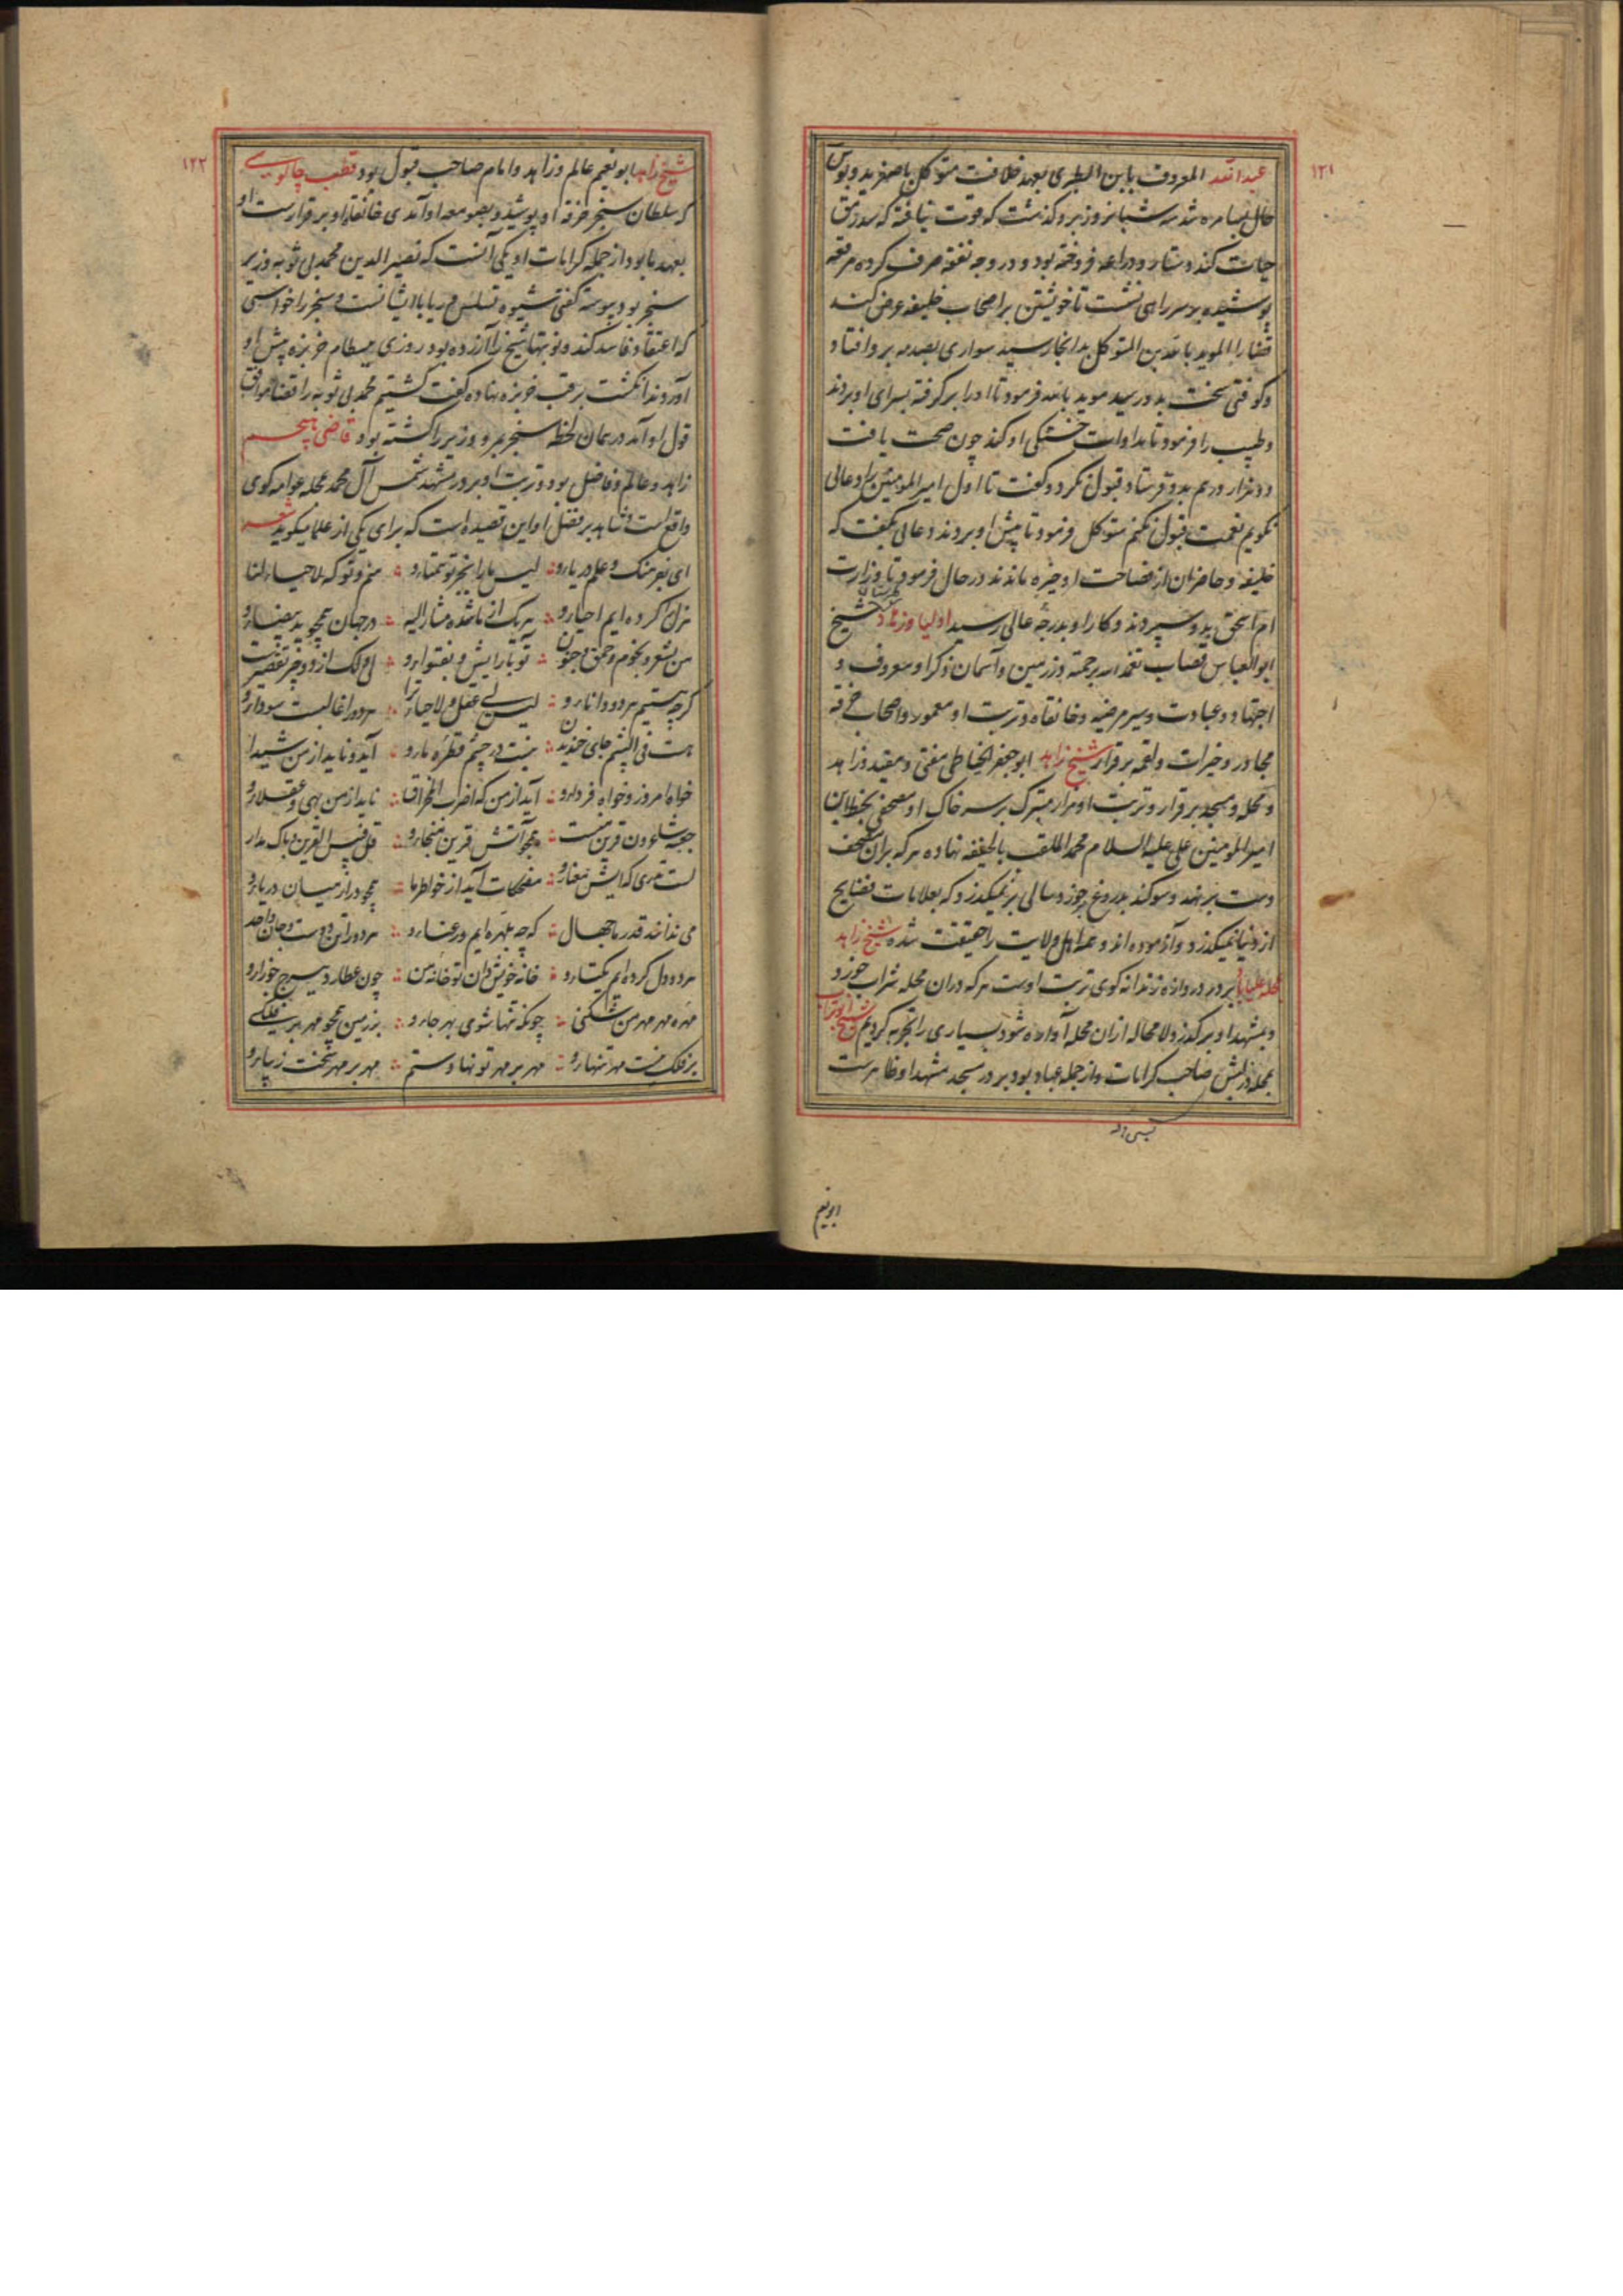 ۱۲۱
عبدالله المعروف بابن الطبری بعهد خلافت متوکل باصفر ید و بوس
حال بسامره شد سه شبانروز برو گذشت که قوت نیافته که سد رمق
حیات کند دستار و دراعه فروخته بود و در وجه نفقه صرف کرده مرقعه
پوشیده بر سر راهی نشست تا خویشتن بر اصحاب خلیفه عرض کند
قضا را الموید بالله بن المتوکل بدانجا رسید سواری بصدمه برو افتاد
و کوفتی سخت بدو رسید موید بالله فرمود تا او را برگرفته بسرای او بردند
و طبیب را فرمود تا مداوات خستگی او کند چون صحت یافت
دو هزار درم بدو فرستاد قبول نکرد و گفت تا اول امیر المومنین را دعای
نگویم نعمت قبول نکنم متوکل فرمود تا پیش او بردند دعای بگفت که
خلیفه و حاضران از فصاحت او خیره ماندند در حال فرمود تا وزارت
ام اسحق بدو سپردند و کار او بدرجه عالی رسید اولیا و زهاد طبرستان شیخ
ابوالعباس قصاب تغمد الله برحمته در زمین و آسمان ذکر او معروف و
اجتهاد و عبادت و سیر مرضیه و خانقاه و تربت او معمور و اصحاب خرقه
مجاور و خیرات و لقمه برقرار شیخ زاهد ابو جعفر الحناطی مفتی و مقید و زاهد
و محله و مسجد برقرار و تربت او مزار متبرک بر سر خاک او مصحفی بخط ابن
امیر المومنین علی علیه السلام محمد الملقب بالحنیفه نهاده هر که بران مصحف
دست بر نهد و سوگند بدروغ خورد سالی بر نمیگذرد که بعلامات فضایح
از دنیا نمیگذرد و آزموده اند و همه اهل ولایت را حقیقت شده شیخ زاهد
بردر دروازه زندانه کوی تربت اوست هر که دران محله شراب خورد
و بمشهد او برگذرد لا محاله ازان محله آواره شود بسیاری را تجربه کردیم شیخ ابوتراب
بمحله درلیش صاحب کرامات و از جمله عباد بود بر در مسجد مشهد او ظاهرست
ابونعیم
۱۲۲
شیخ زاهد ابو نعیم عالم و زاهد و امام صاحب قبول بود قطب چالوسی
که سلطان سنجر خرقه او پوشید و بصومعه او آمدی خانقاه او برقرارست او
بعهد ما بود از جمله کرامات او یکی آنست که نصیر الدین محمد بی توبه وزیر
سنجر بود پیوسته گفتی شیوه تسلس و ریا با ایشانست و سنجر را خواستی
که اعتقاد فاسد کند و نوبتها شیخ را آزرده بود روزی ببسطام خربزه پیش او
آوردند انگشت بر قب خربزه نهاده گفت کشتیم محمد بی توبه را قضا موافق
قول او آمد در همان لحظه سنجر بمرو وزیر را کشته بود قاضی هجیم
زاهد و عالم و فاضل بود و تربت او بر در مشهد شمس آل محمد محله عوامه کوی
واقع است و شاهد بر فضل او این قصیده است که برای یکی از علما میگوید شعر
ای بفرهنگ و علم دریارو لیس مارا بجز تو همتارو منم و توکه لاحیاء لنا
هزل کرده ایم احیارو هر یک از ما شده مشار الیه در جهان همچو ید بیضارو
من بشعر و بخرم و حمق و جنون تو بارایش و بفتوارو
گرچه هستیم هردو دانارو لیس بی عقل و لاحیا را هردو را غالبست سودارو
هست فی الیشم جای خندیدن نیست در چشم قطره مارو آید و ناید از من شیدا
خواه امروز و خواه فردارو آید از من که اضرب المخراق ناید از من بهی و عقلارو
همچو آتش قرین منجارو قل فبیس القرین و باک مدار
مضحکات آید از خواطر ما همچو در از میان دریارو
می ندانند قدر ما جهال که چه بهره ایم و رعناءرو هردو را تن دوست و جان واحد
هردو دل کرده ایم یکتارو خانه خویش دان تو خانه من چون عطارد بسرج جوزارو
مهره مهر مهر من مشکنی چونکه تنها شوی بهر جارو بر زمین همچو مهر بر فلکی
بر فلک نیست مهر تنهارو مهر بر مهر تو نهادستم مهر بر مهر سخت زیبارو